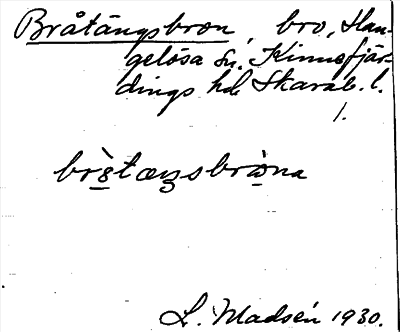 Bråtängsbron, bro, Han-
gelösa sn, Kinnefjär-
dings hd Skarab. l.
1.
brὰ̱stæŋsbrὼ̱na
L. Madsén 1930.